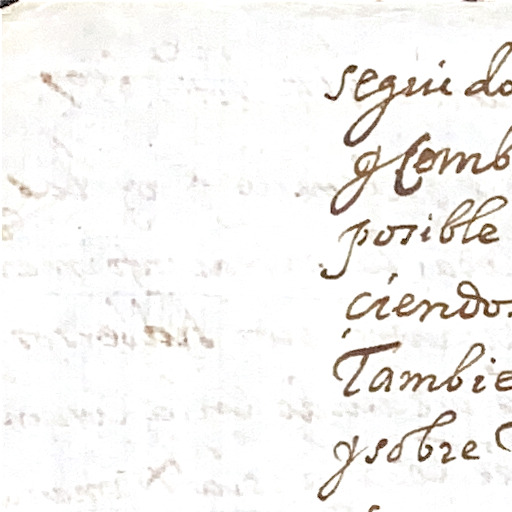 seguido
q comb
posible
ciendos
Tambie
q sobre